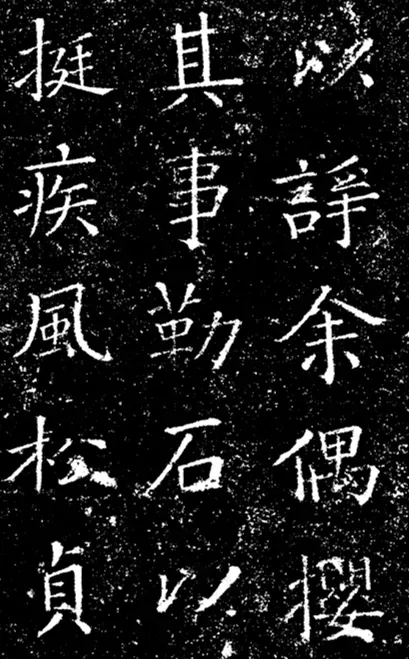 以諍余偶攖
其事勒石以
挺疾風松貞